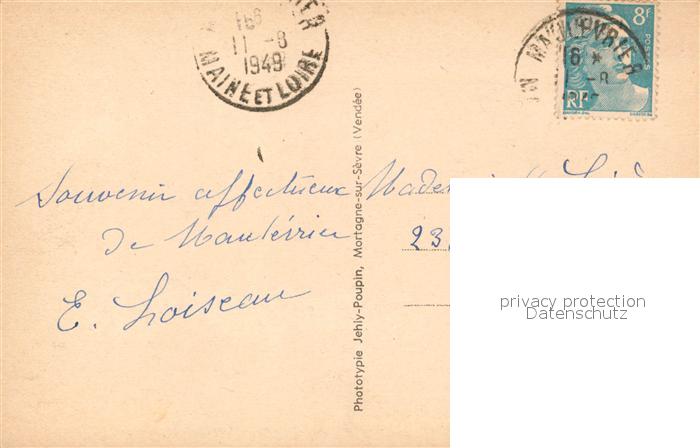 16
11-8
1949
MAINE ET LOIRE
8F
POSTES
RF
MAULÉVRIER
16 *
-8
Souvenir affectueux
de Maulévrier
E. Loiseau
Phototypie Jehly-Poupin, Mortagne-sur-Sèvre (Vendée)
23,
privacy protection
Datenschutz